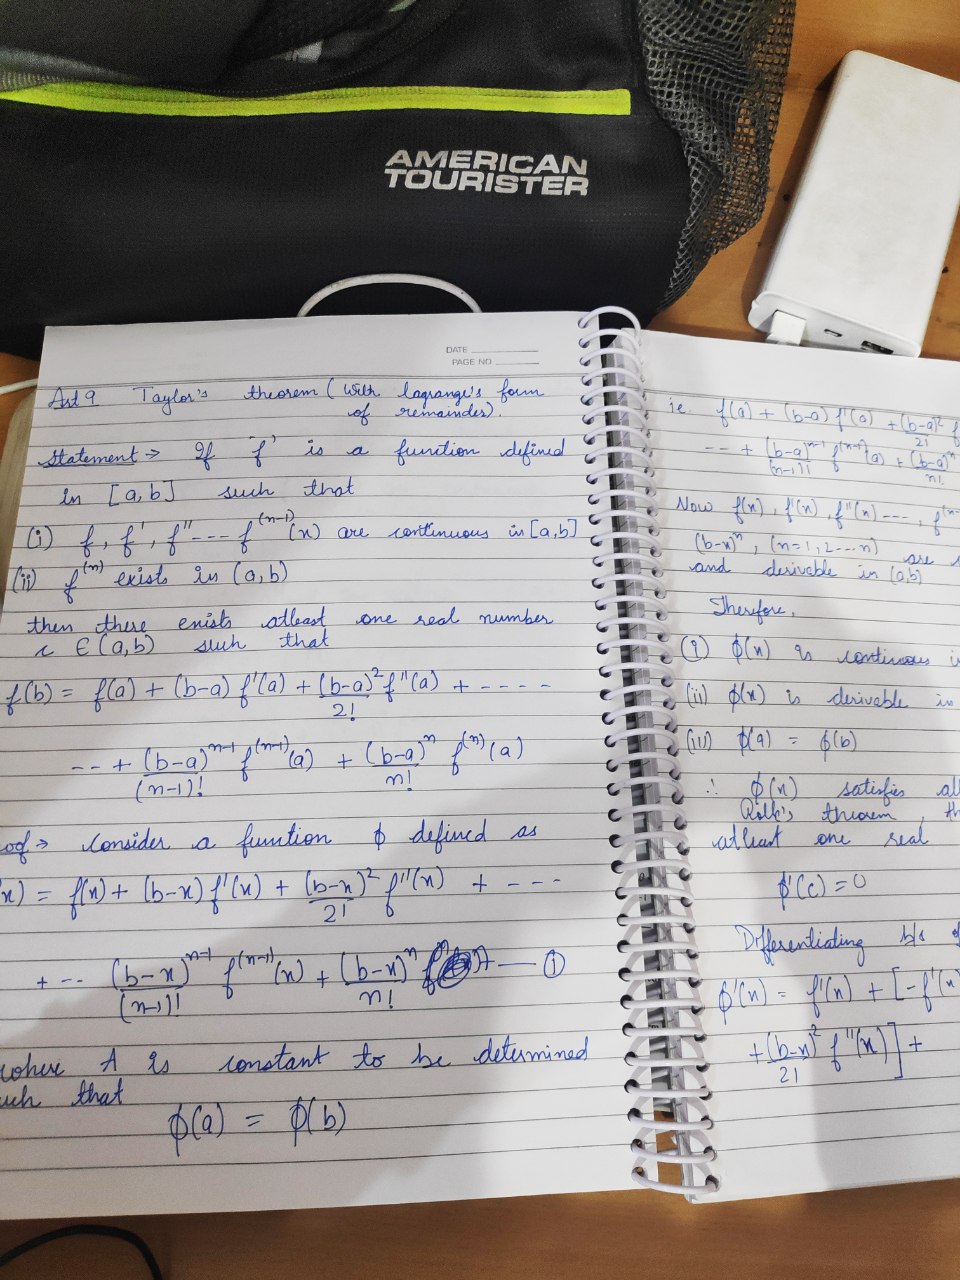 AMERICAN
TOURISTER
DATE
PAGE NO
Art 9 Taylor's theorem (with lagrange's form
of remainder).
Statement → If 'f' is a function defined
in [a,b] such that
(i) f, f', f'' --- f^(n-1)(x) are continuous in [a,b]
(ii) f^(n) exists in (a,b)
then there exists atleast one real number
c ∈ (a,b) such that
f(b) = f(a) + (b-a) f'(a) + (b-a)²/2! f''(a) + ----
-- + (b-a)^(n-1)/(n-1)! f^(n-1)(a) + (b-a)^n/n! f^(n)(a)
oof → consider a function ϕ defined as
(x) = f(x) + (b-x) f'(x) + (b-x)²/2! f''(x) + ---
+ -- (b-x)^(n-1)/(n-1)! f^(n-1)(x) + (b-x)^n/n! — ①
where A is constant to be determined
uch that
ϕ(a) = ϕ(b)
ie. f(a) + (b-a) f'(a) + (b-a)²/2! f
-- + (b-a)^(n-1)/(n-1)! f^(n-1)(a) + (b-a)^n/n!
Now f(x), f'(x), f''(x) ---, f^(n-
(b-x)^n, (n=1,2---n) are
and derivable in (a,b)
Therefore,
(i) ϕ(x) is continuous i
(ii) ϕ(x) is derivable in
(iii) ϕ(a) = ϕ(b)
∴ ϕ(x) satisfies all
Rolle's theorem, th
atleast one real
ϕ'(c) = 0
Differentiating b/s of
ϕ'(x) = f'(x) + [-f'(x
+ (b-x)²/2! f''(x)] +